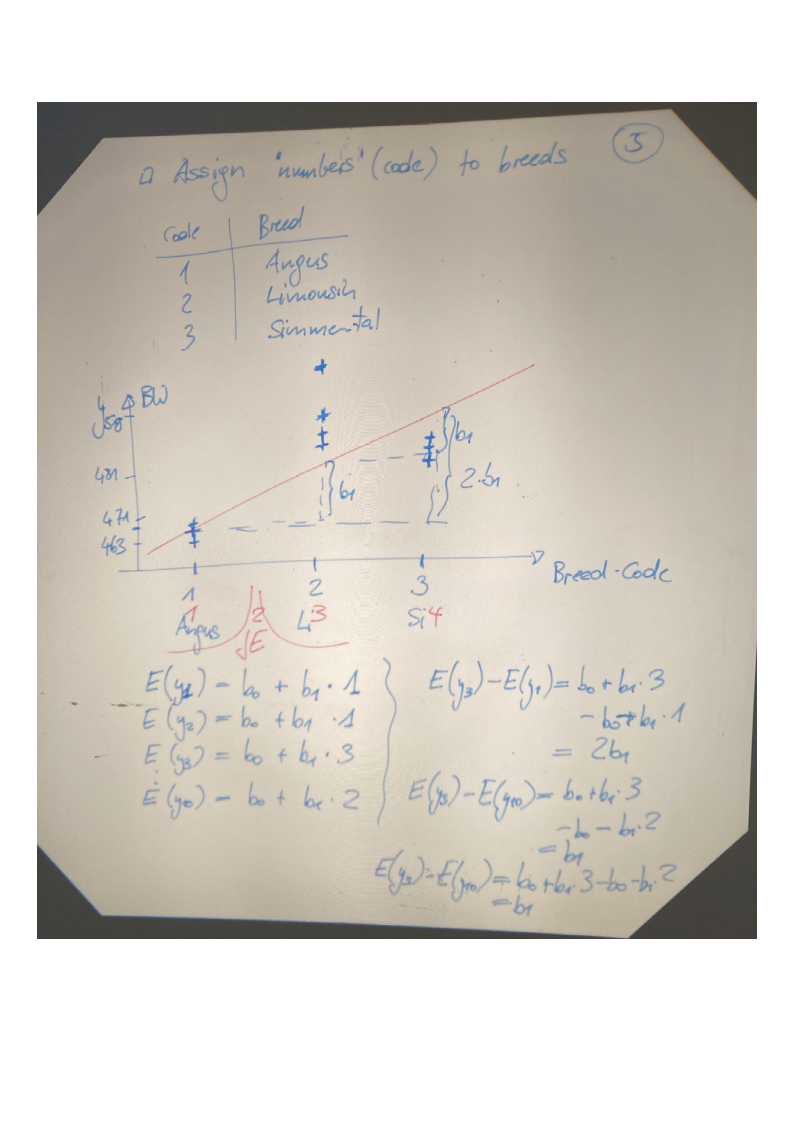 5
□ Assign "numbers" (code) to breeds
Code Breed
1 Angus
2 Limousin
3 Simmental
y BW
481
471
463
b1
b1
2·b1
Breed-Code
1 2 3
1 2 3 4
Angus Li Si
E
E(y1) = b0 + b1 · 1
E(y2) = b0 + b1 · 1
E(y3) = b0 + b1 · 3
E(y10) = b0 + b1 · 2
E(y3) - E(y1) = b0 + b1 · 3
- b0 + b1 · 1
= 2b1
E(y3) - E(y10) = b0 + b1 · 3
- b0 - b1 · 2
= b1
E(y3) - E(y10) = b0 + b1 · 3 - b0 - b1 · 2
= b1